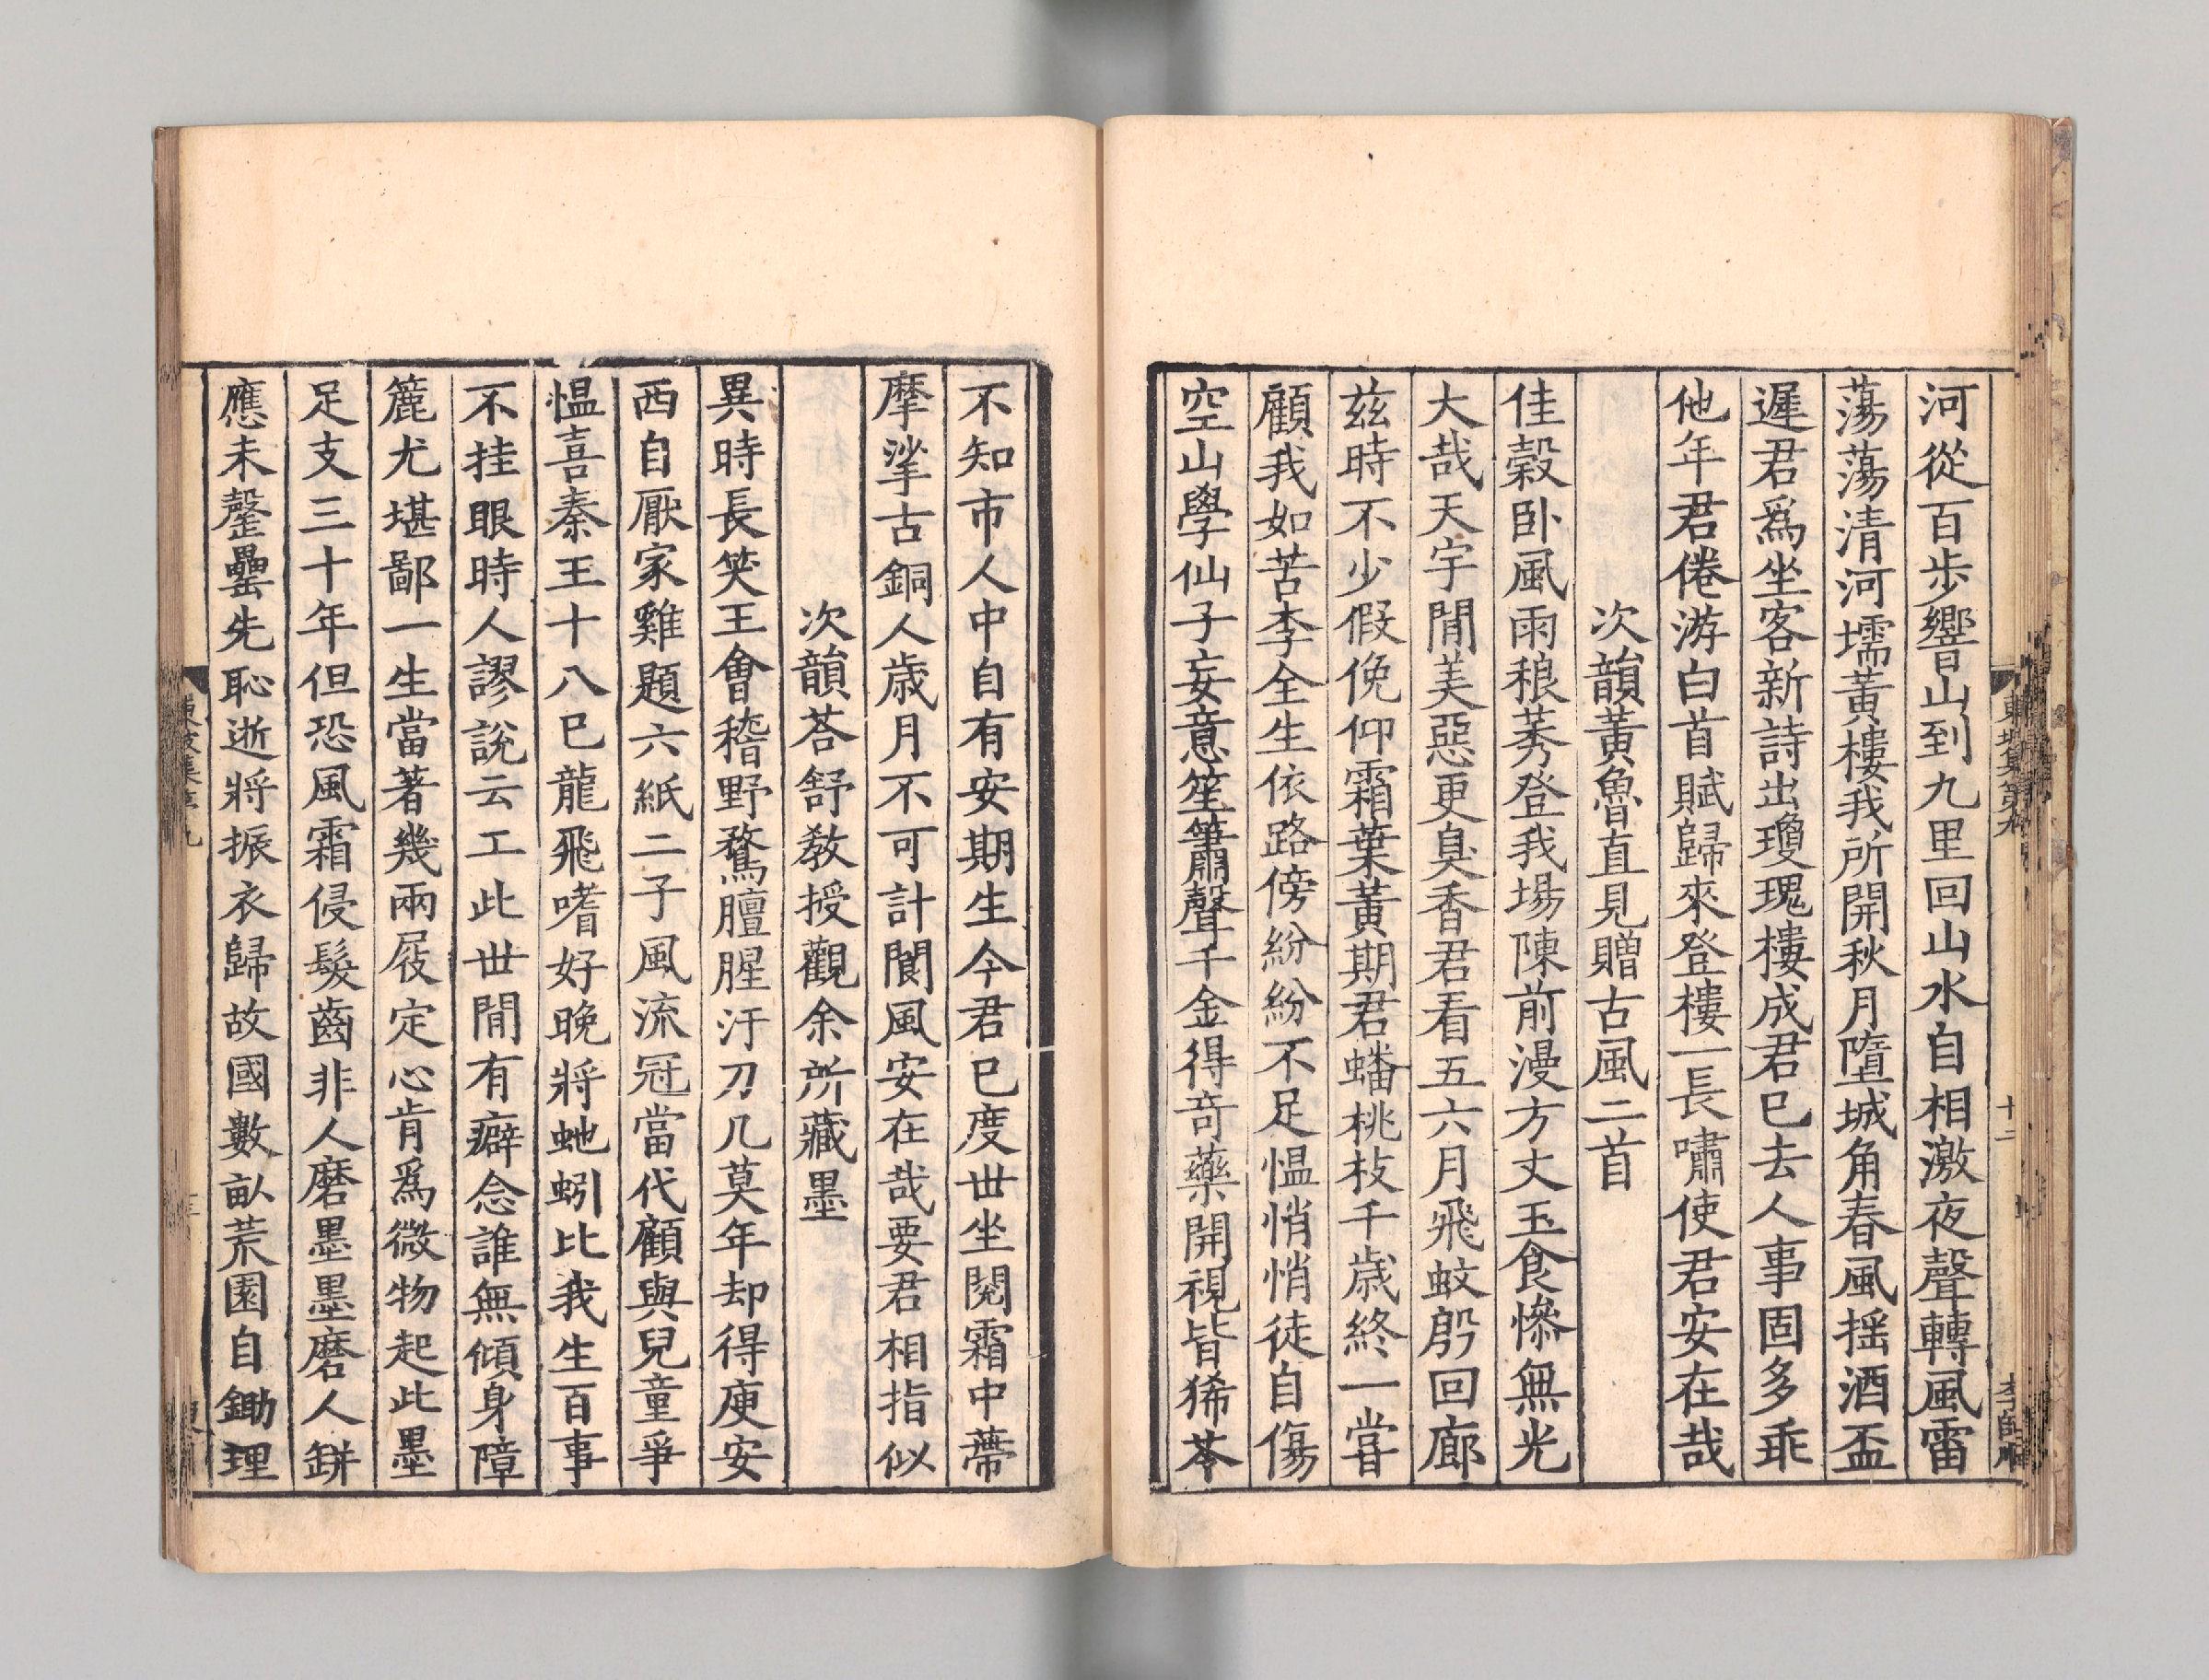 河從百步響山到九里回山水自相激夜聲轉風雷
蕩蕩清河壖黃樓我所開秋月墮城角春風揺酒盃
遲君爲坐客新詩出瓊瑰樓成君已去人事固多乖
他年君倦游白首賦歸來登樓一長嘯使君安在哉
次韻黃魯直見贈古風二首
佳穀卧風雨稂莠登我場陳前漫方丈玉食慘無光
大哉天宇閒美惡更臭香君看五六月飛蚊殷回廊
茲時不少假俛仰霜葉黃期君蟠桃枝千歲終一嘗
顧我如苦李全生依路傍紛紛不足愠悄悄徒自傷
空山學仙子妄意笙簫聲千金得奇藥開視皆狶苓
不知市人中自有安期生今君已度世坐閱霜中蔕
摩挲古銅人歲月不可計閬風安在哉要君相指似
次韻荅舒敎授觀余所藏墨
異時長笑王會稽野鶩膻腥汙刀几莫年却得庾安
西自厭家雞題六紙二子風流冠當代顧與兒童爭
愠喜秦王十八已龍飛嗜好晚將虵蚓比我生百事
不挂眼時人謬說云工此世閒有癖念誰無傾身障
簏尤堪鄙一生當著幾兩屐定心肯爲微物起此墨
足支三十年但恐風霜侵髮齒非人磨墨墨磨人缾
應未罄罍先恥逝將振衣歸故國數畝荒園自鋤理
東坡集第九
十二